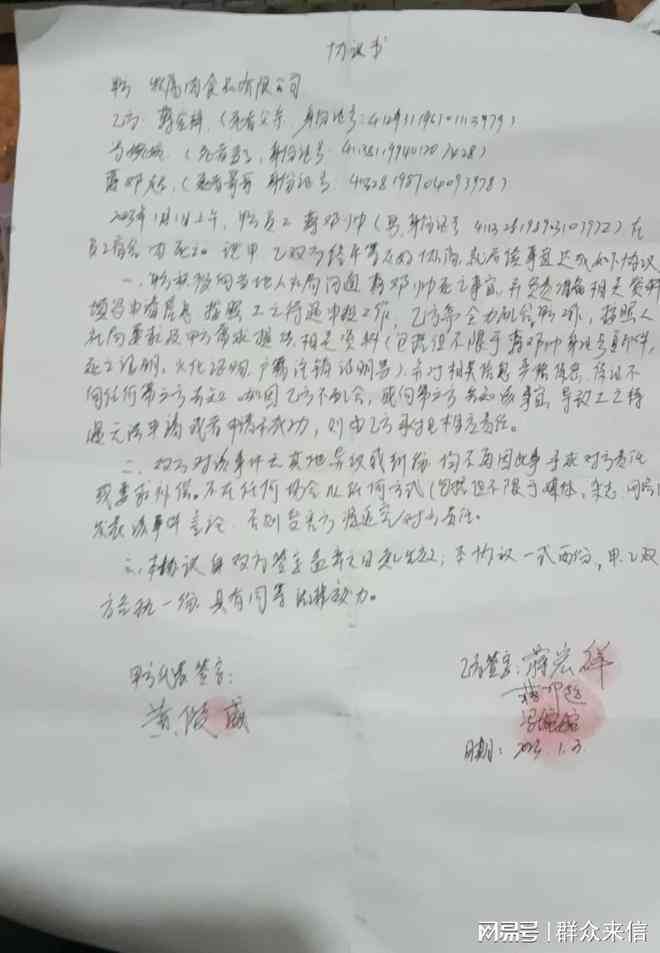 协议书
甲方 牧原肉食品有限公司
乙方 蒋宏祥,(死者父亲 身份证号:
(死者妻子, 身份证号:
蒋邓超,(死者哥哥 身份证号
2023年1月1日上午,甲方员工 蒋邓帅(男,身份证号 在
员工宿舍内死亡。现甲、乙双方经平等友好协商,就后续事宜达成如下协议
一、甲方积极向当地人社局沟通 蒋邓帅死亡事宜,并负责准备相关资料
填写申请信息 按照工亡待遇申报工作,乙方全力配合 工作,按照人
社局要求及甲方需求提供相关资料(包括但不限于蒋邓帅身份证复印件,
死亡证明,火化证明,户籍注销证明等)并对相关信息 保证不
向任何第三方告知。如因乙方不配合,或向第三方告知该事宜,导致工亡待
遇无法申请或者申请不成功,则由乙方承担相应责任。
二、双方对该事件无其他异议或纠纷,均不再因此事寻求对方责任
或要求补偿。不在任何场合以任何方式(包括但不限于媒体、杂志、网络
发表该事件言论,否则 对方责任。
三、本协议自双方签字盖章之日起生效,本协议一式两份,甲、乙双
方各执一份,具有同等法律效力。
甲方代表签字:
黄俊威
乙方签字:蒋宏祥
蒋邓超
日期:2023.1.3
网易号 | 群众来信